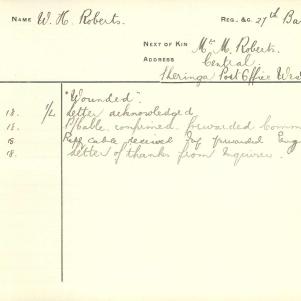 NAME W. H. Roberts. REG. &C. 27th Ba
NEXT OF KIN Mrs M. Roberts.
ADDRESS Central.
Sheringa Post Office Wes
"Wounded".
18. Letter acknowledged
18. Cable confirmed forwarded Comm
18. cable received forwarded
18. Letter of thanks from Inquirer.